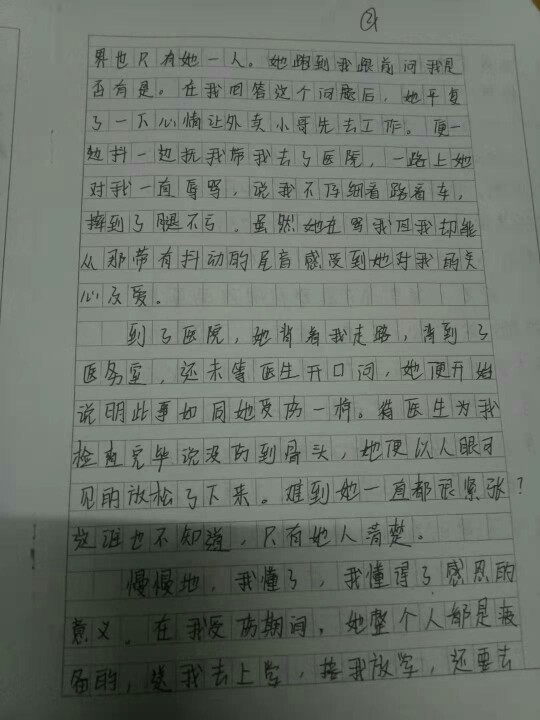 ②
界也只有她一人。她跑到我跟前问我是
否有是。在我回答这个问题后，她平复
了一下心情让外卖小哥先去工作。便一
边抖一边扰我带我去了医院，一路上她
对我一直辱骂，说我不仔细看路看车，
摔到了腿不亏。虽然她在骂我但我却能
从那带有抖动的尾音感受到她对我的关
心及爱。
到了医院，她背着我走路，背到了
医务室，还未等医生开口问，她便开始
说明此事如同她受伤一样。待医生为我
检查完毕说没伤到骨头，她便以人眼可
见的放松了下来。难到她一直都很紧张？
这谁也不知道，只有她人清楚。
慢慢地，我懂了，我懂得了感恩的
意义。在我受伤期间，她整个人都是疲
备的，送我去上学，接我放学，还要去